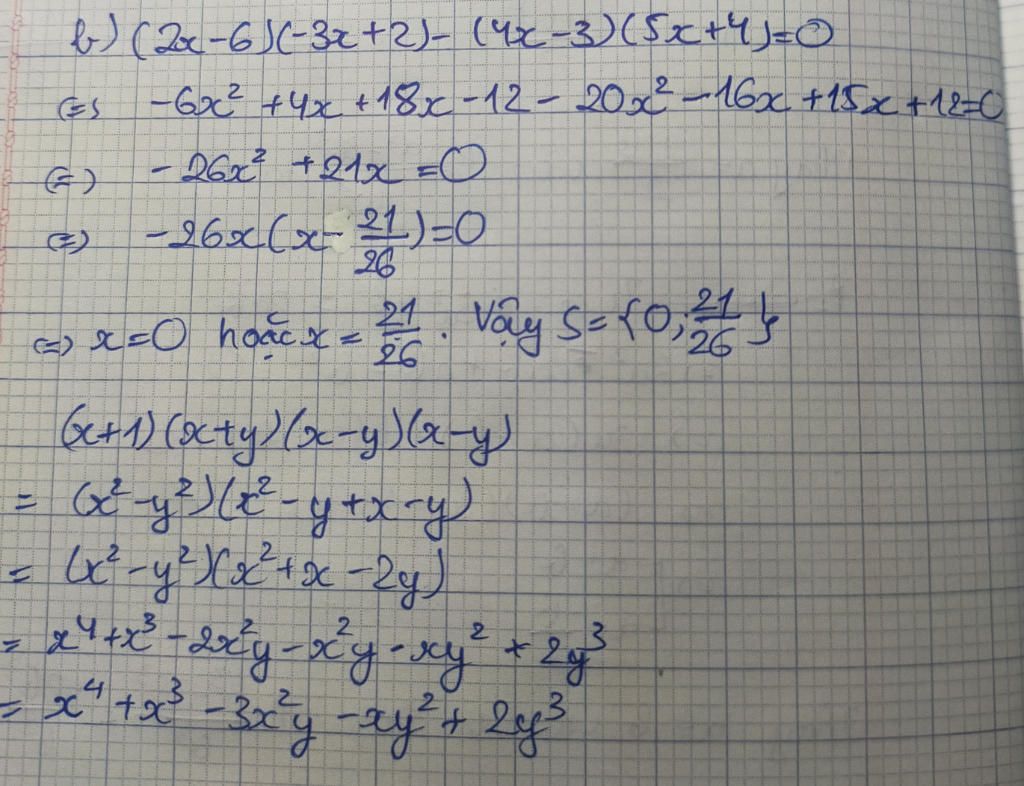 b) (2x-6)(-3x+2)-(4x-3)(5x+4)=0
<=> -6x² +4x +18x -12 - 20x² -16x +15x +12=0
<=> -26x² +21x =0
<=> -26x(x-21/26)=0
<=> x=0 hoặc x = 21/26. Vậy S={0;21/26}
(x+1)(x+y)(x-y)(x-y)
= (x²-y²)(x²-y+x-y)
= (x²-y²)(x²+x-2y)
= x⁴+x³-2x²y-x²y-xy²+2y³
= x⁴+x³-3x²y-xy²+2y³